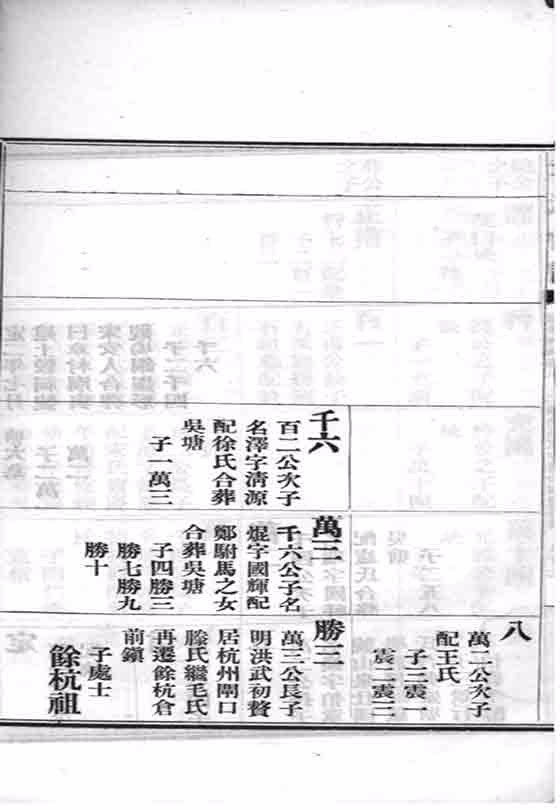 八
萬二公次子
配王氏
子三震一
震二震三
千六
百二公次子
名澤字清源
配徐氏合葬
吳塘
子一萬三
萬三
千六公子名
焜字國輝配
鄭駙馬之女
合葬吳塘
子四勝三
勝七勝九
勝十
勝三
萬三公長子
明洪武初贅
居杭州閘口
滕氏繼毛氏
再遷餘杭倉
前鎮
子處士
餘杭祖